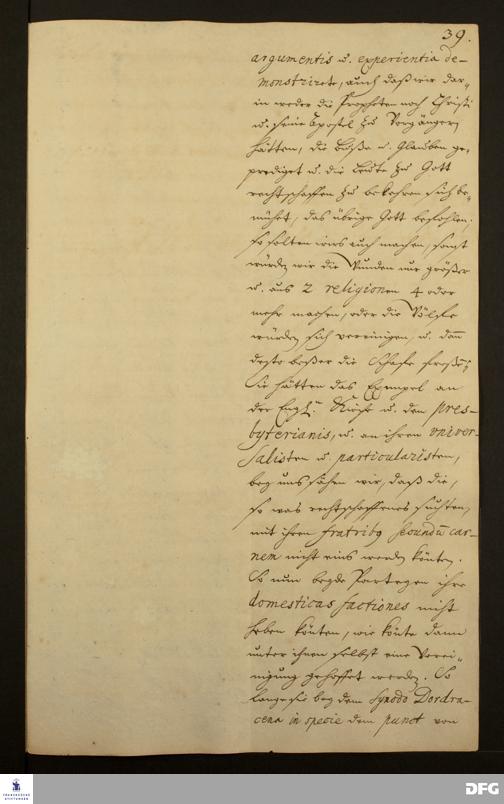 39.
argumentis u. experientia de-
monstrirte, auch daß wir dar-
in weder die Propheten noch Christi
u. seine Apostel zu Vorgängern
hätten, die Buße u. Glauben ge-
prediget u. die Leute zu Gott
rechtschaffen zu bekehren sich be-
mühet, das übrige Gott befohlen;
so solten wirs auch machen, sonst
würden wir die Wunden nur größer
u. aus 2 religionen 4 oder
mehr machen, oder die Wölfe
würden sich vereinigen, u. dann
desto beßer die Schafe freßen;
Sie hätten das Exempel an
der Engl. Kirche u. den pres-
byterianis, u. an ihren univer-
salisten u. particularisten,
bey uns sähen wir, daß die,
so was rechtschaffenes suchten,
mit ihren fratribus secundum car-
nem nicht eins werden könten.
So nun beyde Parteyen ihre
domesticas factiones nicht
heben könten, wie könte dann
unter ihnen selbst eine Verei-
nigung gehoffet werden. So
lange sie bey dem Synodo Dordra-
cena in specie dem punct von
TFRANCKESCHE
STIFTUNGEN
DFG